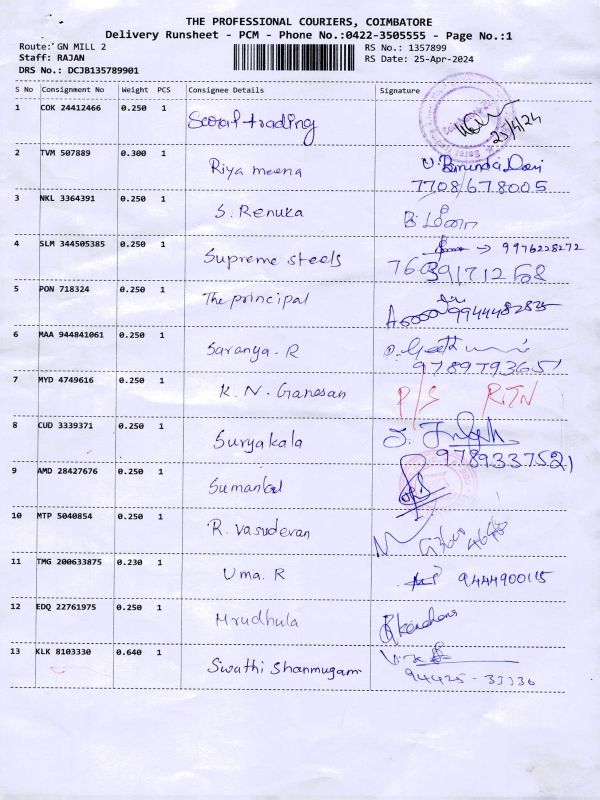 THE PROFESSIONAL COURIERS, COIMBATORE
Delivery Runsheet - PCM - Phone No.:0422-3505555 - Page No.:1
Route: GN MILL 2 RS No.: 1357899
Staff: RAJAN RS Date: 25-Apr-2024
DRS No.: DCJB135789901
S No Consignment No Weight PCS Consignee Details Signature
1 COK 24412466 0.250 1 trading 25/4/24
2 TVM 507889 0.300 1 Riya meena
7708678005
3 NKL 3364391 0.250 1 S. Renuka
4 SLM 344505385 0.250 1 Supreme steels → 9976228272
5 PON 718324 0.250 1 The principal 9944482835
6 MAA 944841061 0.250 1 Saranya. R
7 MYD 4749616 0.250 1 K. N. Ganesan P/S RTN
8 CUD 3339371 0.250 1 Suryakala
9789337521
9 AMD 28427676 0.250 1
10 MTP 5040854 0.250 1 R. Vasudevan
11 TMG 200633875 0.230 1 Uma. R 9444900115
12 EDQ 22761975 0.250 1 Mrudhula
13 KLK 8103330 0.640 1 Swathi Shanmugam
94425-33336